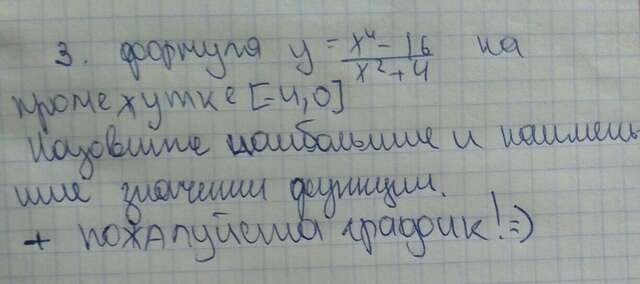 3. формула y = \frac{x^4 - 16}{x^2 + 4} на
промежутке [-4,0]
Назовите наибольшие и наимень
шие значении функции.
+ пожалуйста график! =)